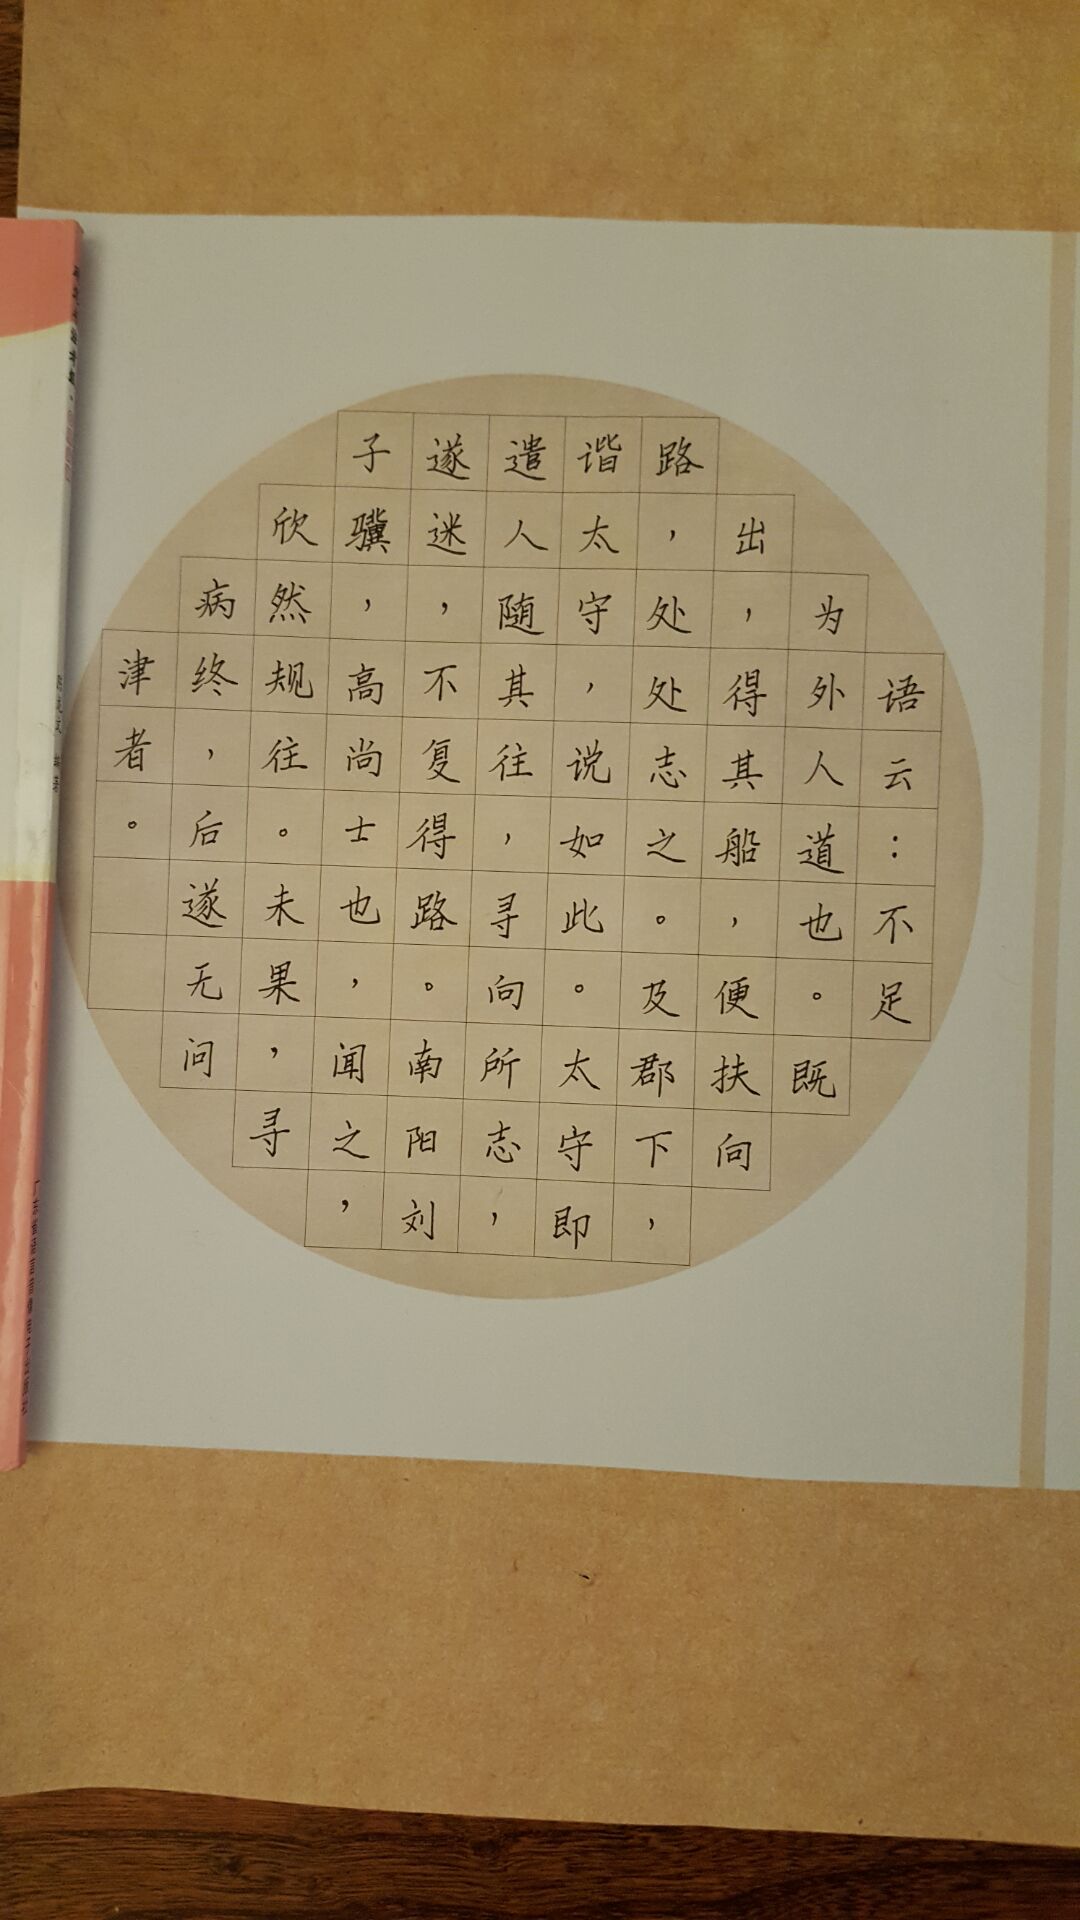 语云：不足
为外人道也。既
出，得其船，便扶向
路，处处志之。及郡下，
谐太守，说如此。太守即
遣人随其往，寻向所志，
遂迷，不复得路。南阳刘
子骥，高尚士也，闻之，
欣然规往。未果，寻
病终，后遂无问
津者。
广东省语言音像电子出版社